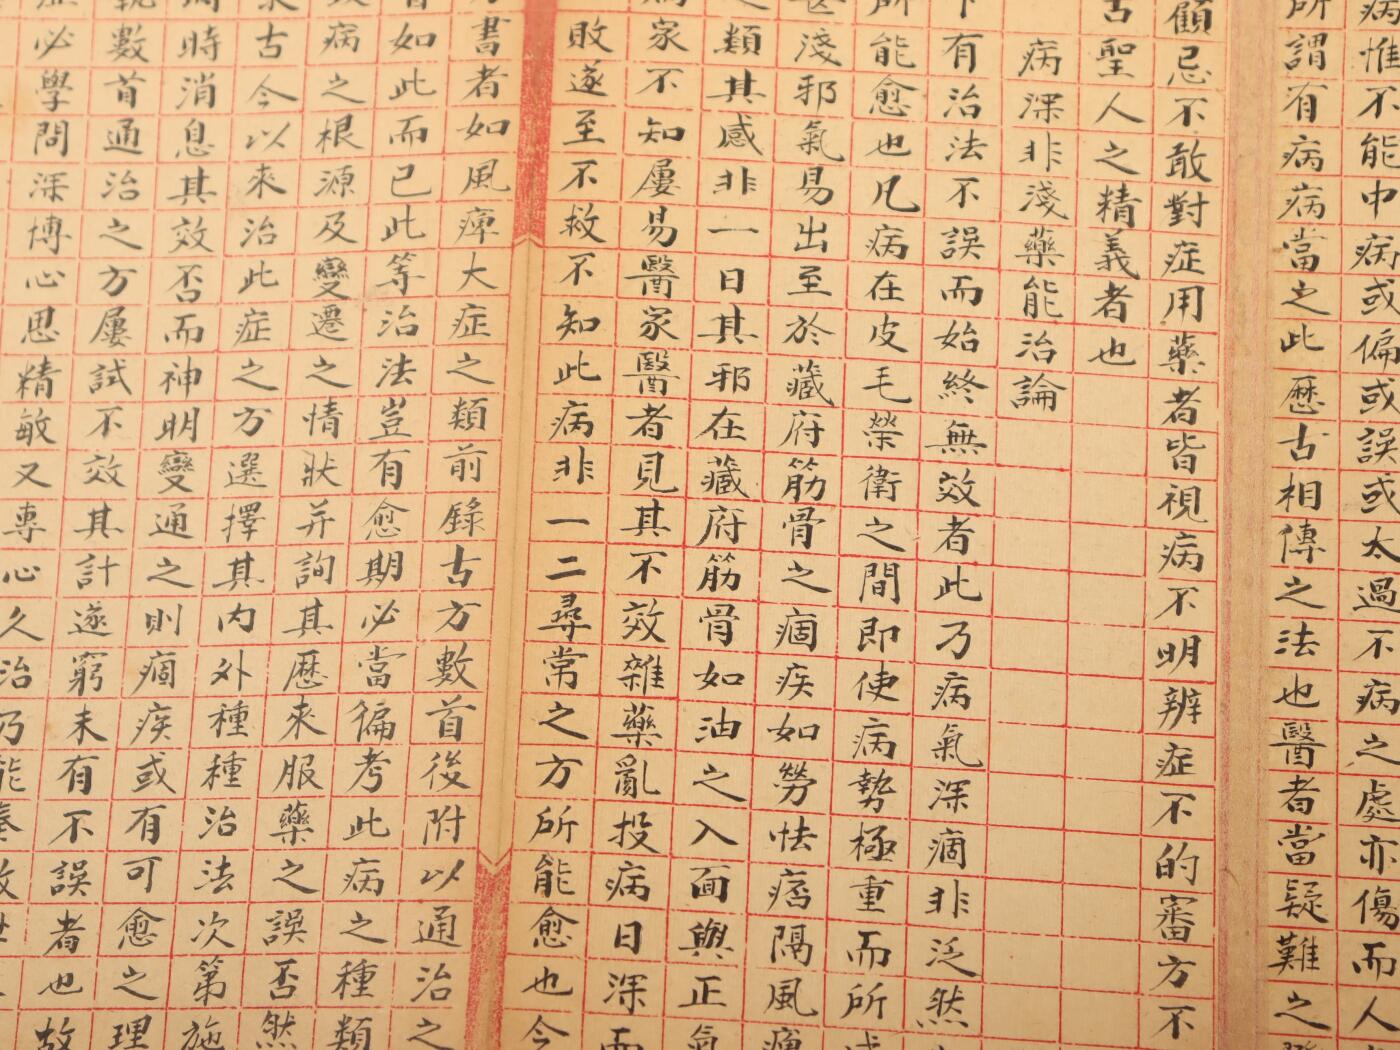 病惟不能中病或偏或誤或太過不病之處亦傷而人
所謂有病病當之此歷古相傳之法也醫者當疑難之
顧忌不敢對症用藥者皆視病不明辨症不的審方不
古聖人之精義者也
病深非淺藥能治論
有治法不誤而始終無效者此乃病氣深痼非泛然
所能愈也凡病在皮毛榮衛之間即使病勢極重而所
甚淺邪氣易出至於藏府筋骨之痼疾如勞怯痞隔風痺
類其感非一日其邪在藏府筋骨如油之入面與正氣
家不知屢易醫家醫者見其不效雜藥亂投病日深而
敗遂至不救不知此病非一二尋常之方所能愈也今
書者如風痺大症之類前錄古方數首後附以通治之
如此而已此等治法豈有愈期必當徧考此病之種類
病之根源及變遷之情狀并詢其歷來服藥之誤否然
古今以來治此症之方選擇其內外種種治法次第施
時消息其效否而神明變通之則痼疾或有可愈之理
數首通治之方屢試不效其計遂窮未有不誤者也故
必學問深博心思精敏又專心久治乃能奏效